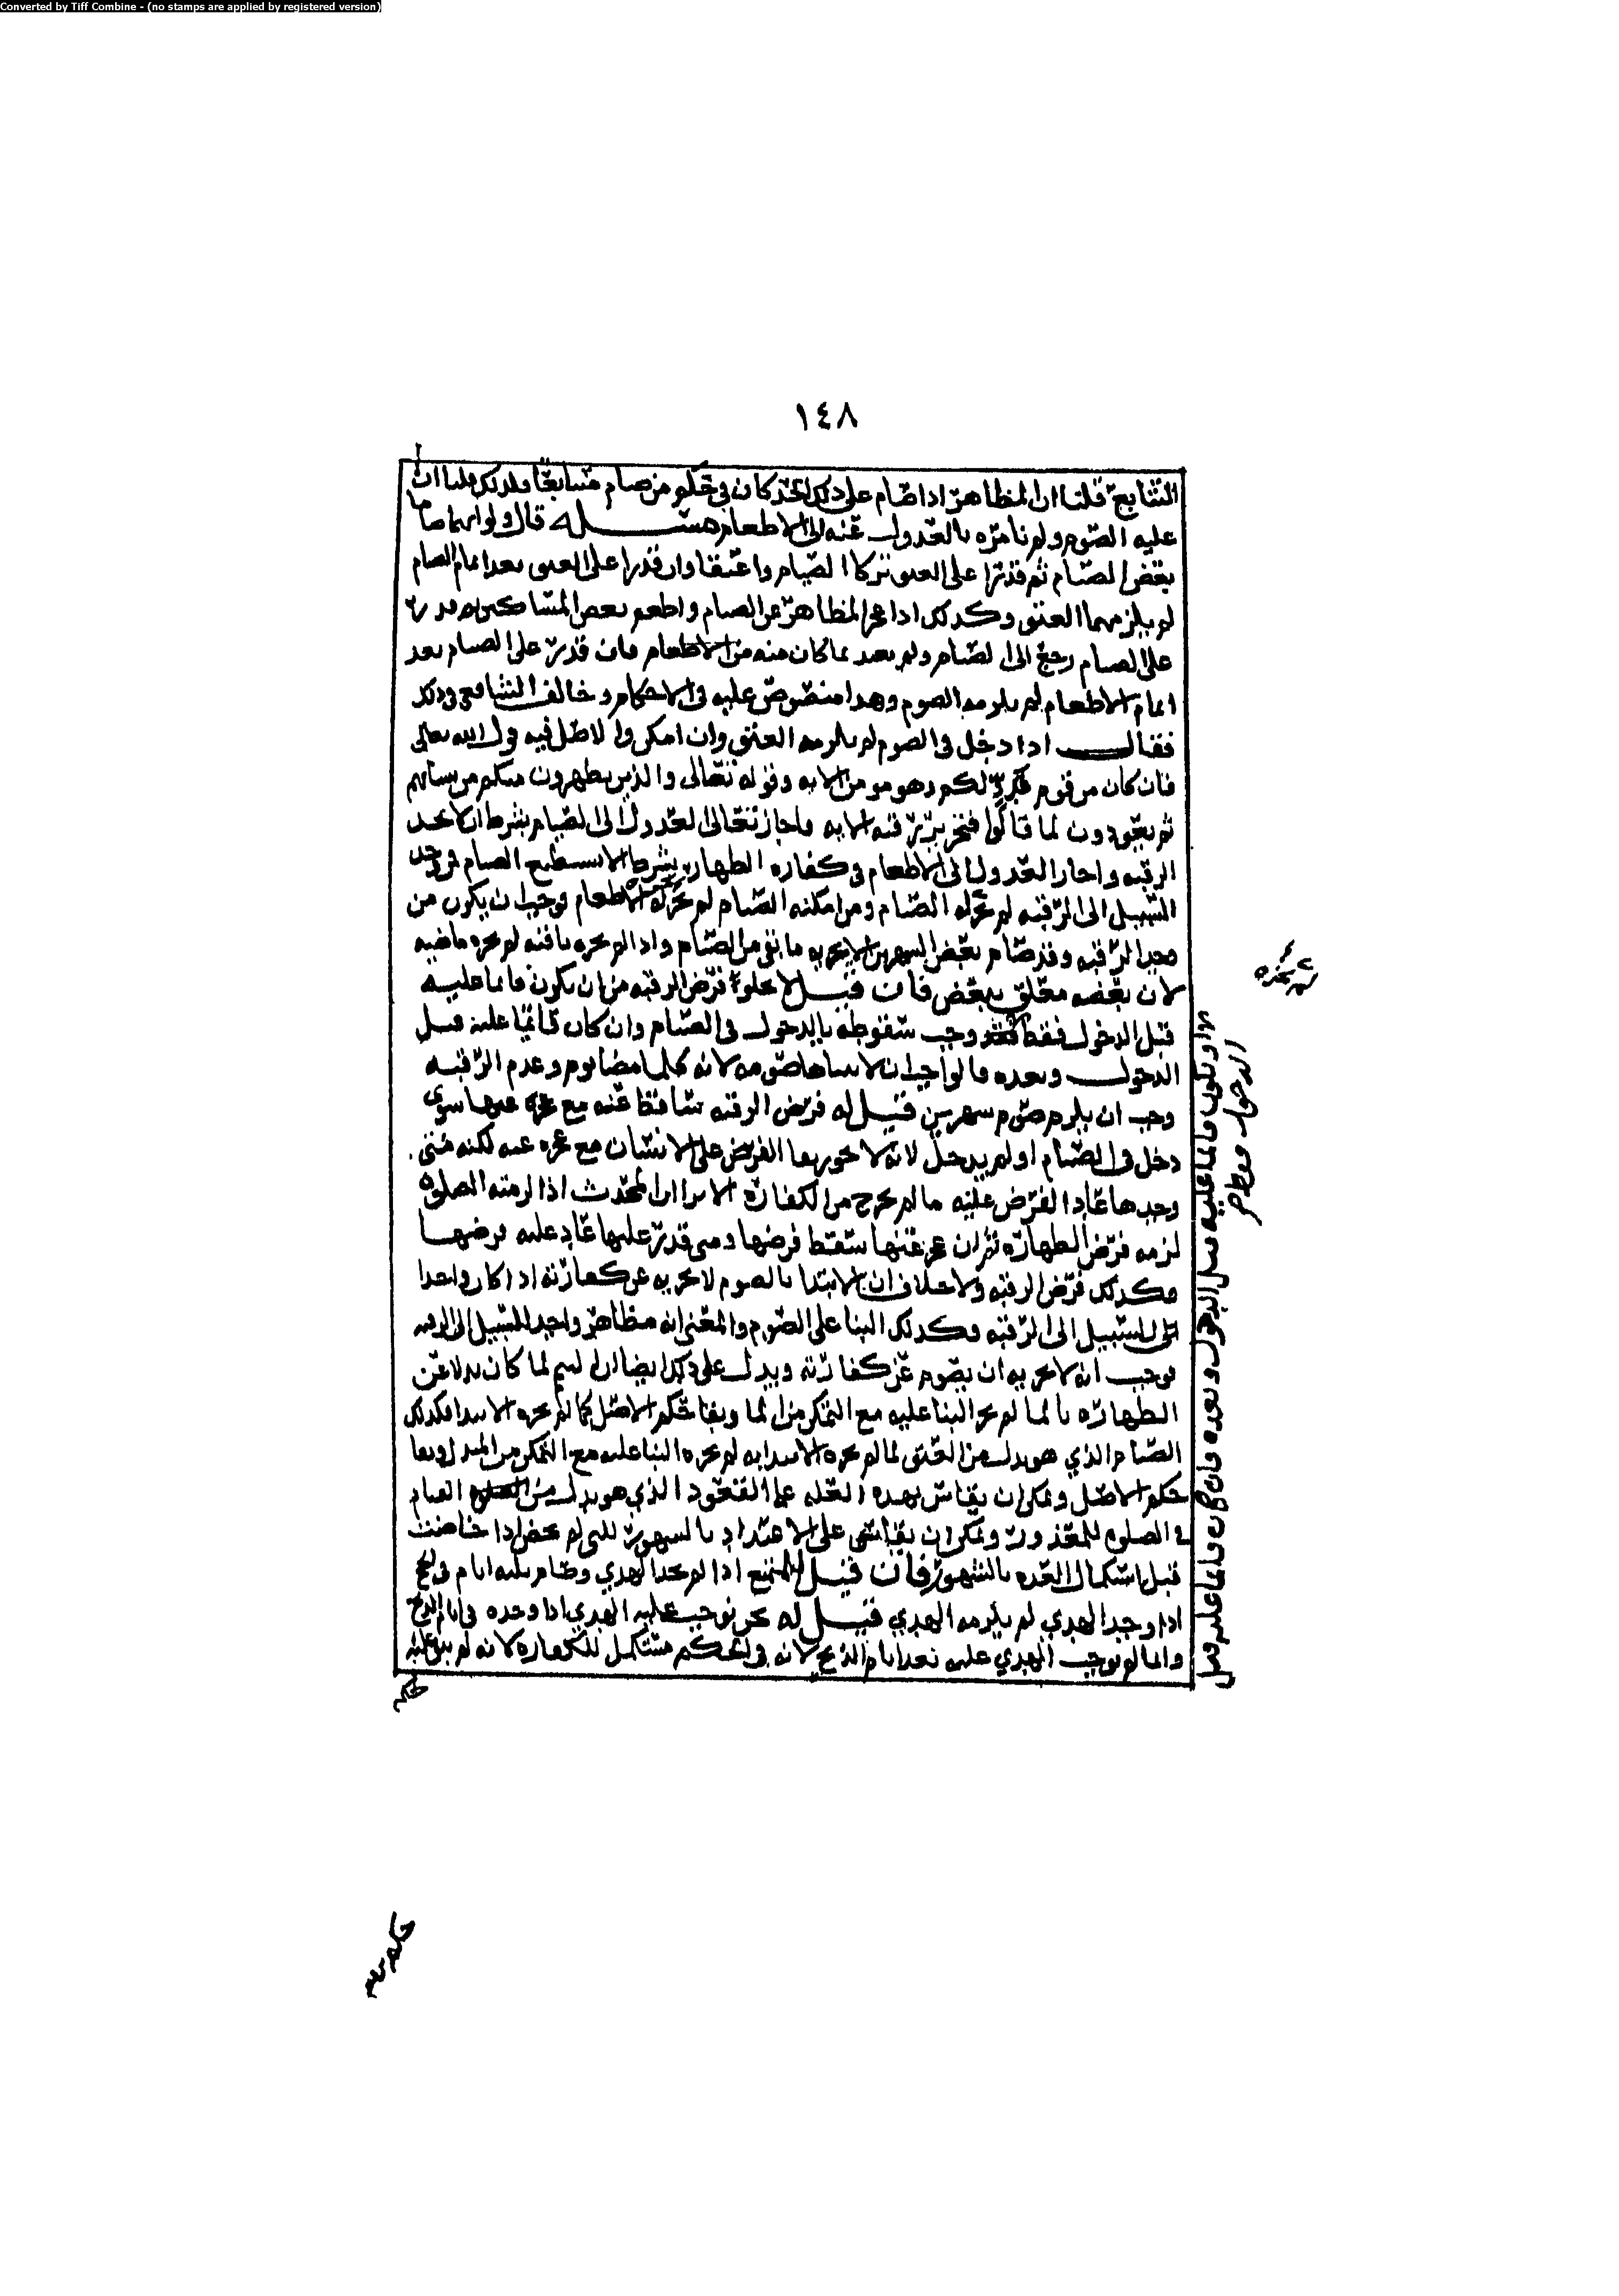 Converted by Tiff Combine - (no stamps are applied by registered version)
١٤٨
التتابع قلنا ان المظاهر اذا صام على ذلك كان في حكم من صام متتابعا ولذلك قلنا ان
عليه الصوم ولم نامره بالعدول عنه الى الاطعام مسئلة قال ولو انهما صاما
بعض الصيام ثم قدرا على العتق تركا الصيام واعتقا وان قدرا على العتق بعد اتمام الصيام
لم يلزمهما العتق وكذلك اذا عجز المظاهر عن الصيام واطعم بعض المساكين ثم قدر
على الصيام رجع الى الصيام ولم يعتد بما كان منه من الاطعام فان قدر على الصيام بعد
اتمام الاطعام لم يلزمه الصوم وهذا منصوص عليه في الاحكام وخالف الشافعي في ذلك
فقال اذا دخل في الصوم لم يلزمه العتق وان امكن والاصل فيه قول الله تعالى
فان كان من قوم عدو لكم وهو مومن الايه وقوله تعالى والذين يظهرون منكم من نسائهم
ثم يعودون لما قالوا فتحرير رقبه الايه فاجاز تعالى العدول الى الصيام بشرط ان لا يجد
الرقبه واجاز العدول الى الاطعام في كفاره الظهار بشرط الا يستطيع الصيام فمن وجد
السبيل الى الرقبه لم يجزه الصيام ومن امكنه الصيام لم يجزه الاطعام فوجب ان يكون من
وجد الرقبه وقد صام بعض الشهرين لا يجزيه ما بقي من الصيام واذا لم يجزه باقيه لم يجزه ماضيه
لان بعضه معلق ببعض فان قيل لا يخلوا فرض الرقبه من ان يكون قائما عليه
قبل الدخول فقط فقد وجب سقوطه بالدخول في الصيام وان كان قائما عليه قبل
الدخول وبعده فالواجب ان لا صومه لانه كلما مضا يوم وعدم الرقبه
وجب ان يلزم صوم شهرين قيل له فرض الرقبه ساقط عنه مع عجزه عنها سوى
دخل في الصيام او لم يدخل لانه لا يجوز بقا الفرض على الانسان مع عجزه عنه لكنه متى
وجدها عاد الفرض عليه ما لم يخرج من الكفاره الا ترا ان المحدث اذا لزمته الصلوه
لزمه فرض الطهاره ثم ان عجز عنها سقط فرضها ومتى قدر عليها عاد عليه فرضها
فكذلك فرض الرقبه ولا خلاف ان الابتدا بالصوم لا يجزيه عن كفارته اذا كان واجدا
السبيل الى الرقبه فكذلك البنا على الصوم والمعنى انه مظاهر واجد للسبيل الى الرقبه
فوجب انه لا يجزيه ان يصوم عن كفارته ويدل على ذلك ايضا ان التيمم لما كان بدلا عن
الطهاره بالما لم يجز البنا عليه مع التمكن من الما وبقا حكم الاصل كما لم يجزه الابتدا فكذلك
الصيام الذي هو بدل من العتق لما لم يجزه الابتدا به لم يجزه البنا عليه مع التمكن من المبدل وبقا
حكم الاصل ويمكن ان يقاس بهذه العله على القعود الذي هو بدل من القيام
في الصلوه للمعذور ويمكن ان يقاس على الاعتداد بالشهور للتي لم تحض اذا حاضت
قبل استكمال العده بالشهور فان قيل المتمتع اذا لم يجد الهدي وصام ثلثه ايام في الحج
اذا وجد الهدي لم يلزمه الهدي قيل له نحن نوجب عليه الهدي اذا وجده في ايام الذبح
وانما لم نوجب الهدي عليه بعد ايام الذبح لانه في الحكم مستكمل للكفاره لانه لم يبق عليه
او يكون قائما عليه قبل الدخول وبعده فان كان قائما عليه قبل
الدخول فقط